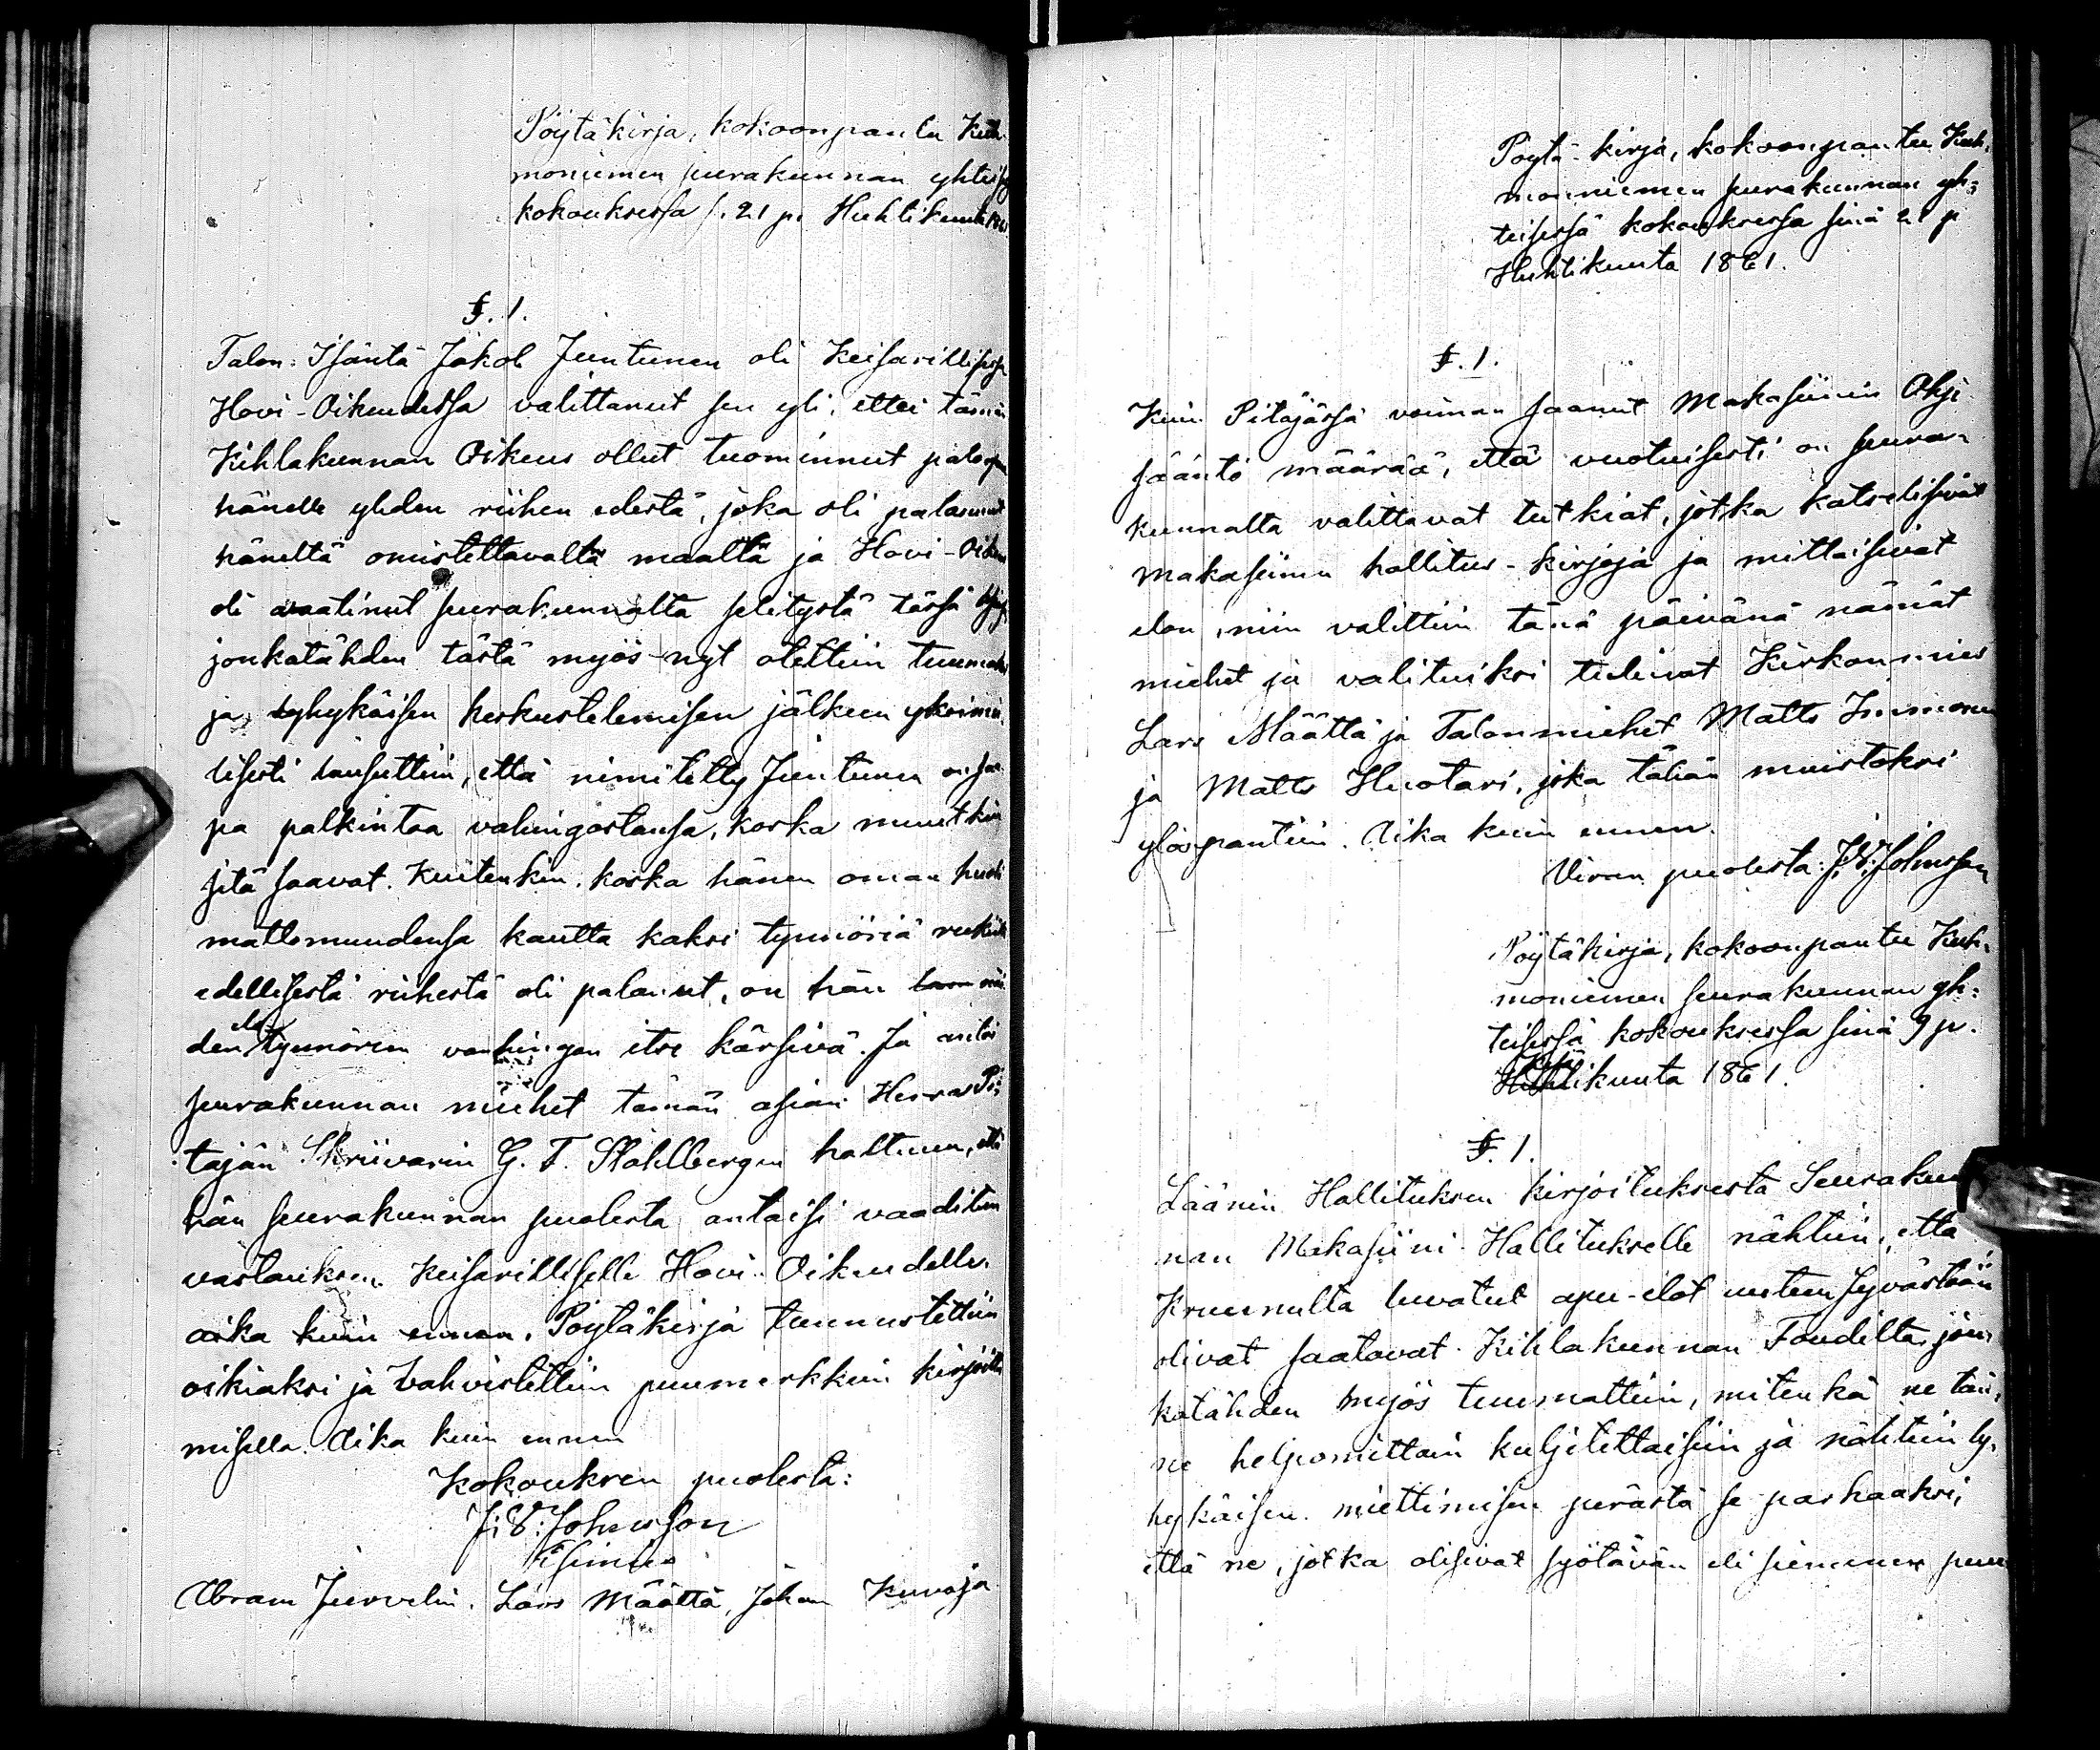 Pöytäkirja, kokoonpantu Kuh-
moniemen seurakunnan yhteis
kokouksessa s. 21 p. Huhtikuuta
§. 1.
Talon: Isäntä Jakob Juntunen oli Keisarillisessa
Hovi-Oikeudessa valittanut sen yli, ettei tämän
Kihlakunnan Oikeus ollut tuominnut palo
hänelle yhden riihen edestä, joka oli palannut
häneltä omistettavalta maalta ja Hovi-Oikeu
oli waatinut seurakunnalta selitystä tässä
jonkatähden tästä myös nyt otettiin tuumata
ja lyhykäisen keskustelemisen jälkeen yksimie
lisesti lausuttiin, että nimitetty Juntunen on saa
pa palkintaa vahingostansa, koska muutkin
sitä saavat. Kuitenkin, koska hänen oman huoli
mattomuudensa kautta kaksi tynnöriä rukiita
edellisestä riihestä oli palanut, on hän nii
den elo tynnörein vahingon itse kärsivä. Ja antoi
seurakunnan miehet tämän asian Herra Pi-
täjän Skriivarin G. F. Ståhlbergin haltuun, että
hän seurakunnan puolesta antaisi vaaditun
vastauksen Keisarilliselle Hovi-Oikeudelle.
aika kuin ennen. Pöytäkirja tunnustettiin
oikiaksi ja vahvistettiin puumerkkein kirjoitta
misella. Aika kuin ennen
Kokouksen puolesta:
J: V: Johnsson
Esimies
Abram Juvvelin. Lars Määttä, Johan Kuvaja
Pöytä-kirja, kokoonpantu Kuh-
moniemen seurakunnan yh=
teisessä kokouksessa sinä 21 p
Huhtikuuta 1861.
§. 1.
Kuin Pitäjässä voiman saanut Makasiinin Ohje
sääntö määrää, että vuotuisesti on seura-
kunnalta valittavat tutkiat, jotka katselisivat
makasiinin hallitus-kirjoja ja mittaisivat
elon, niin valittiin tänä päivänä nämät
miehet ja valituiksi tulivat Kirkonmies
Lars Määttä ja Talonmiehet Matts Immonen
ja Matts Huotari, joka tähän muistoksi
ylöspantiin. Aika kuin ennen.
Viran puolesta: J: V: Johnsson
Pöytäkirja, kokoonpantu Kuh-
moniemen seurakunnan yh=
teisessä kokouksessa sinä 9 p.
Kesäkuuta 1861.
§. 1.
Läänin Hallituksen kirjoituksesta Seurakun
nan Makasiini-Hallitukselle nähtiin, että
Kruunulta luvatut apu-elot uuteen Jyvästöön
olivat saatavat Kihlakunnan Foudilta, jon-
katähden myös tuumattiin, mitenkä ne tän-
ne helpomittain kuljetettaisiin ja nähtiin ly-
hykäisen miettimisen perästä se parhaaksi,
että ne, jotka olisivat syötävän eli siemenen puu